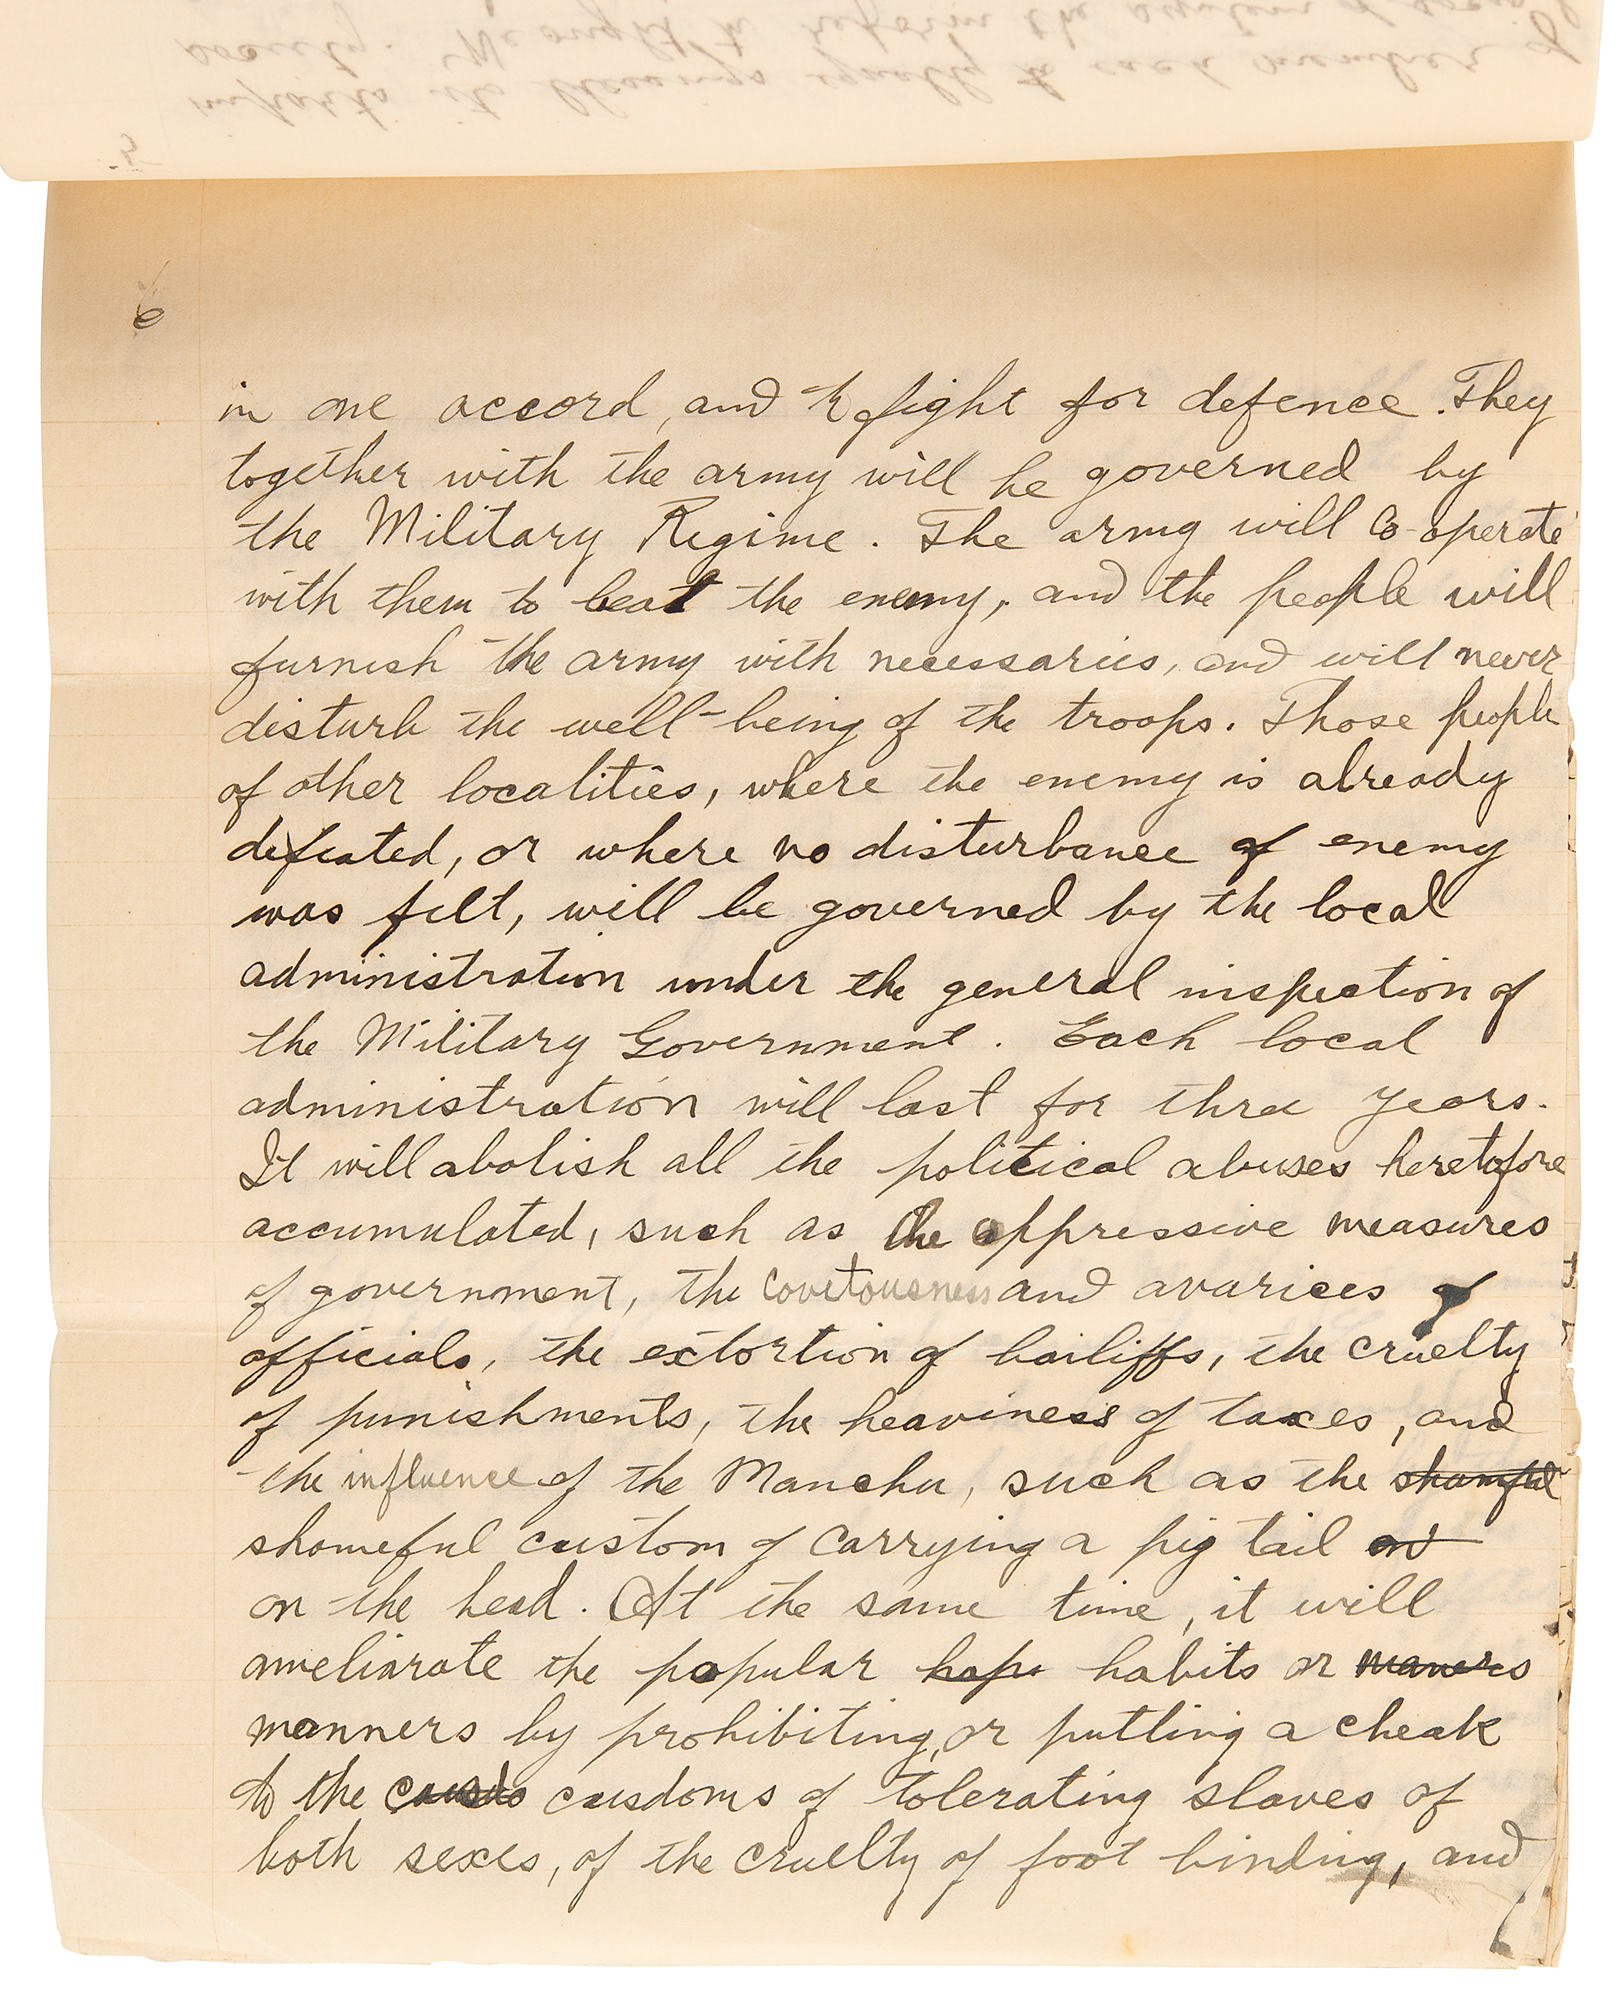 society. We ought to reform the system of
imparts its blessings equally to each member of
5
6
in one accord, and to fight for defence. They
together with the army will be governed by
the Military Regime. The army will Co-operate
with them to beat the enemy, and the people will
furnish the army with necessaries, and will never
disturb the well-being of the troops. Those people
of other localities, where the enemy is already
defeated, or where no disturbance of enemy
was felt, will be governed by the local
administration under the general inspection of
the Military Government. Each local
administration will last for three years.
It will abolish all the political abuses heretofore
accumulated, such as the oppressive measures
of government, the covetousness and avarices of
officials, the extortion of bailiffs, the cruelty
of punishments, the heaviness of taxes, and
the influence of the Manchu, such as the shamful
shameful custom of carrying a pig tail and
on the head. At the same time, it will
ameliarate the popular hap habits or maners
manners by prohibiting, or putting a cheak
to the cusdo cusdoms of tolerating slaves of
both sexes, of the cruelty of foot binding, and